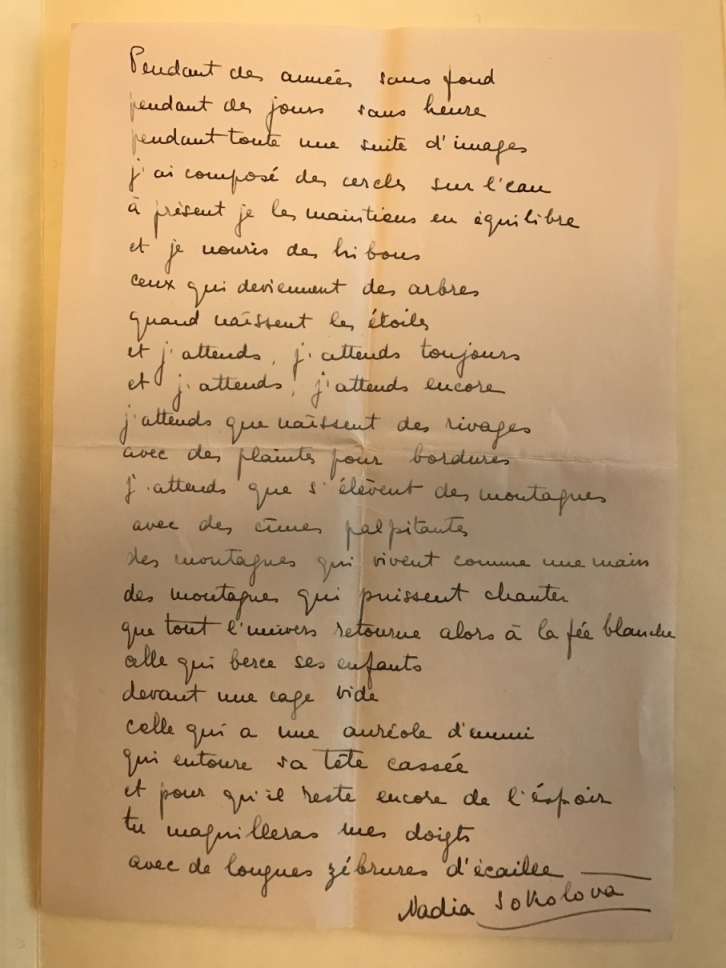 Pendant des années sans fond
pendant des jours sans heure
pendant toute une suite d'images
j'ai composé des cercles sur l'eau
à présent je les maintiens en équilibre
et je nouris des hibous
ceux qui deviennent des arbres
quand naissent les étoiles
et j'attends, j'attends toujours
et j'attends, j'attends encore
j'attends que naissent des rivages
avec des plaintes pour bordures
j'attends que s'élèvent des montagnes
avec des cîmes palpitantes
des montagnes qui vivent comme une main
des montagnes qui puissent chanter
que tout l'univers retourne alors à la fée blanche
celle qui berce ses enfants
devant une cage vide
celle qui a une auréole d'ennui
qui entoure sa tête cassée
et pour qu'il reste encore de l'éspoir
tu maquilleras mes doigts
avec de longues zébrures d'écaille
Nadia Sokolova